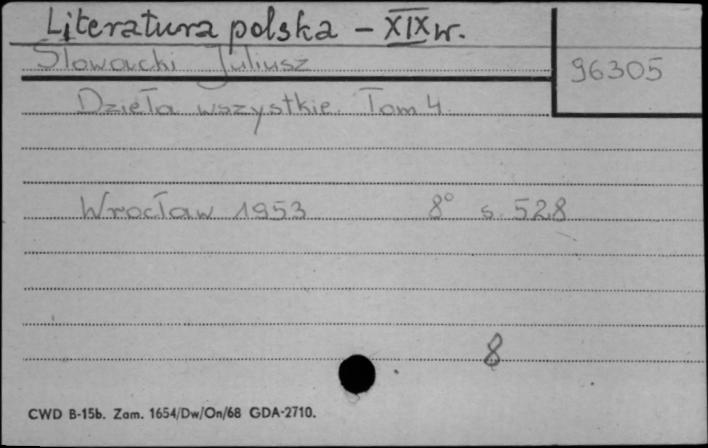 Literatura polska – XIX w.
Słowacki Juliusz
96305
Dzieła wszystkie. Tom 4.
Wrocław 1953 8° s. 528
8
CWD B-15b. Zam. 1654/Dw/On/68 GDA-2710.